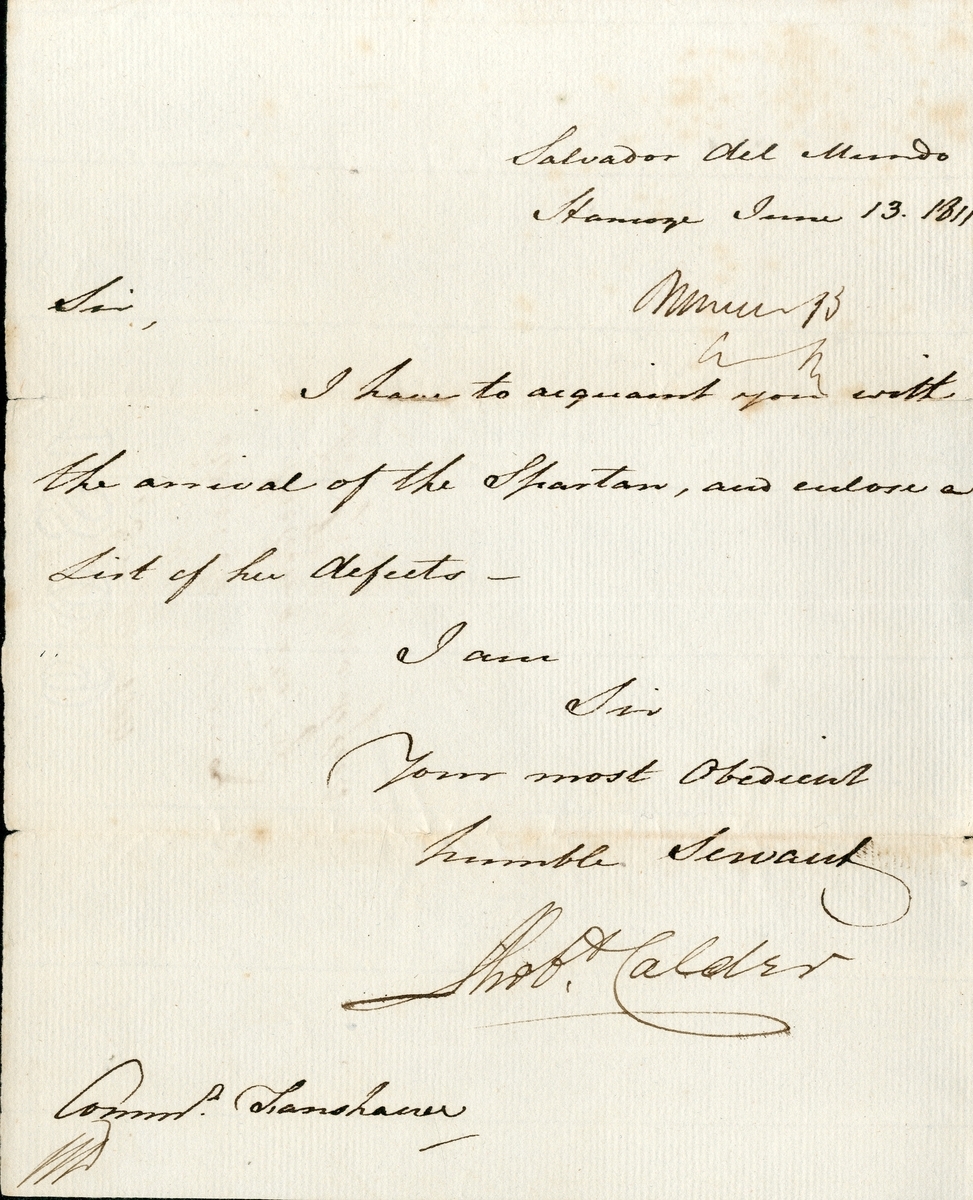 Salvador del Mundo
Hamoze June 13. 1811
Sir,
I have to acquaint you with
the arrival of the Spartan, and enclose a
List of her defects -
I am
Sir
Your most Obedient
humble Servant
Robt. Calder
Commr. Fanshawe